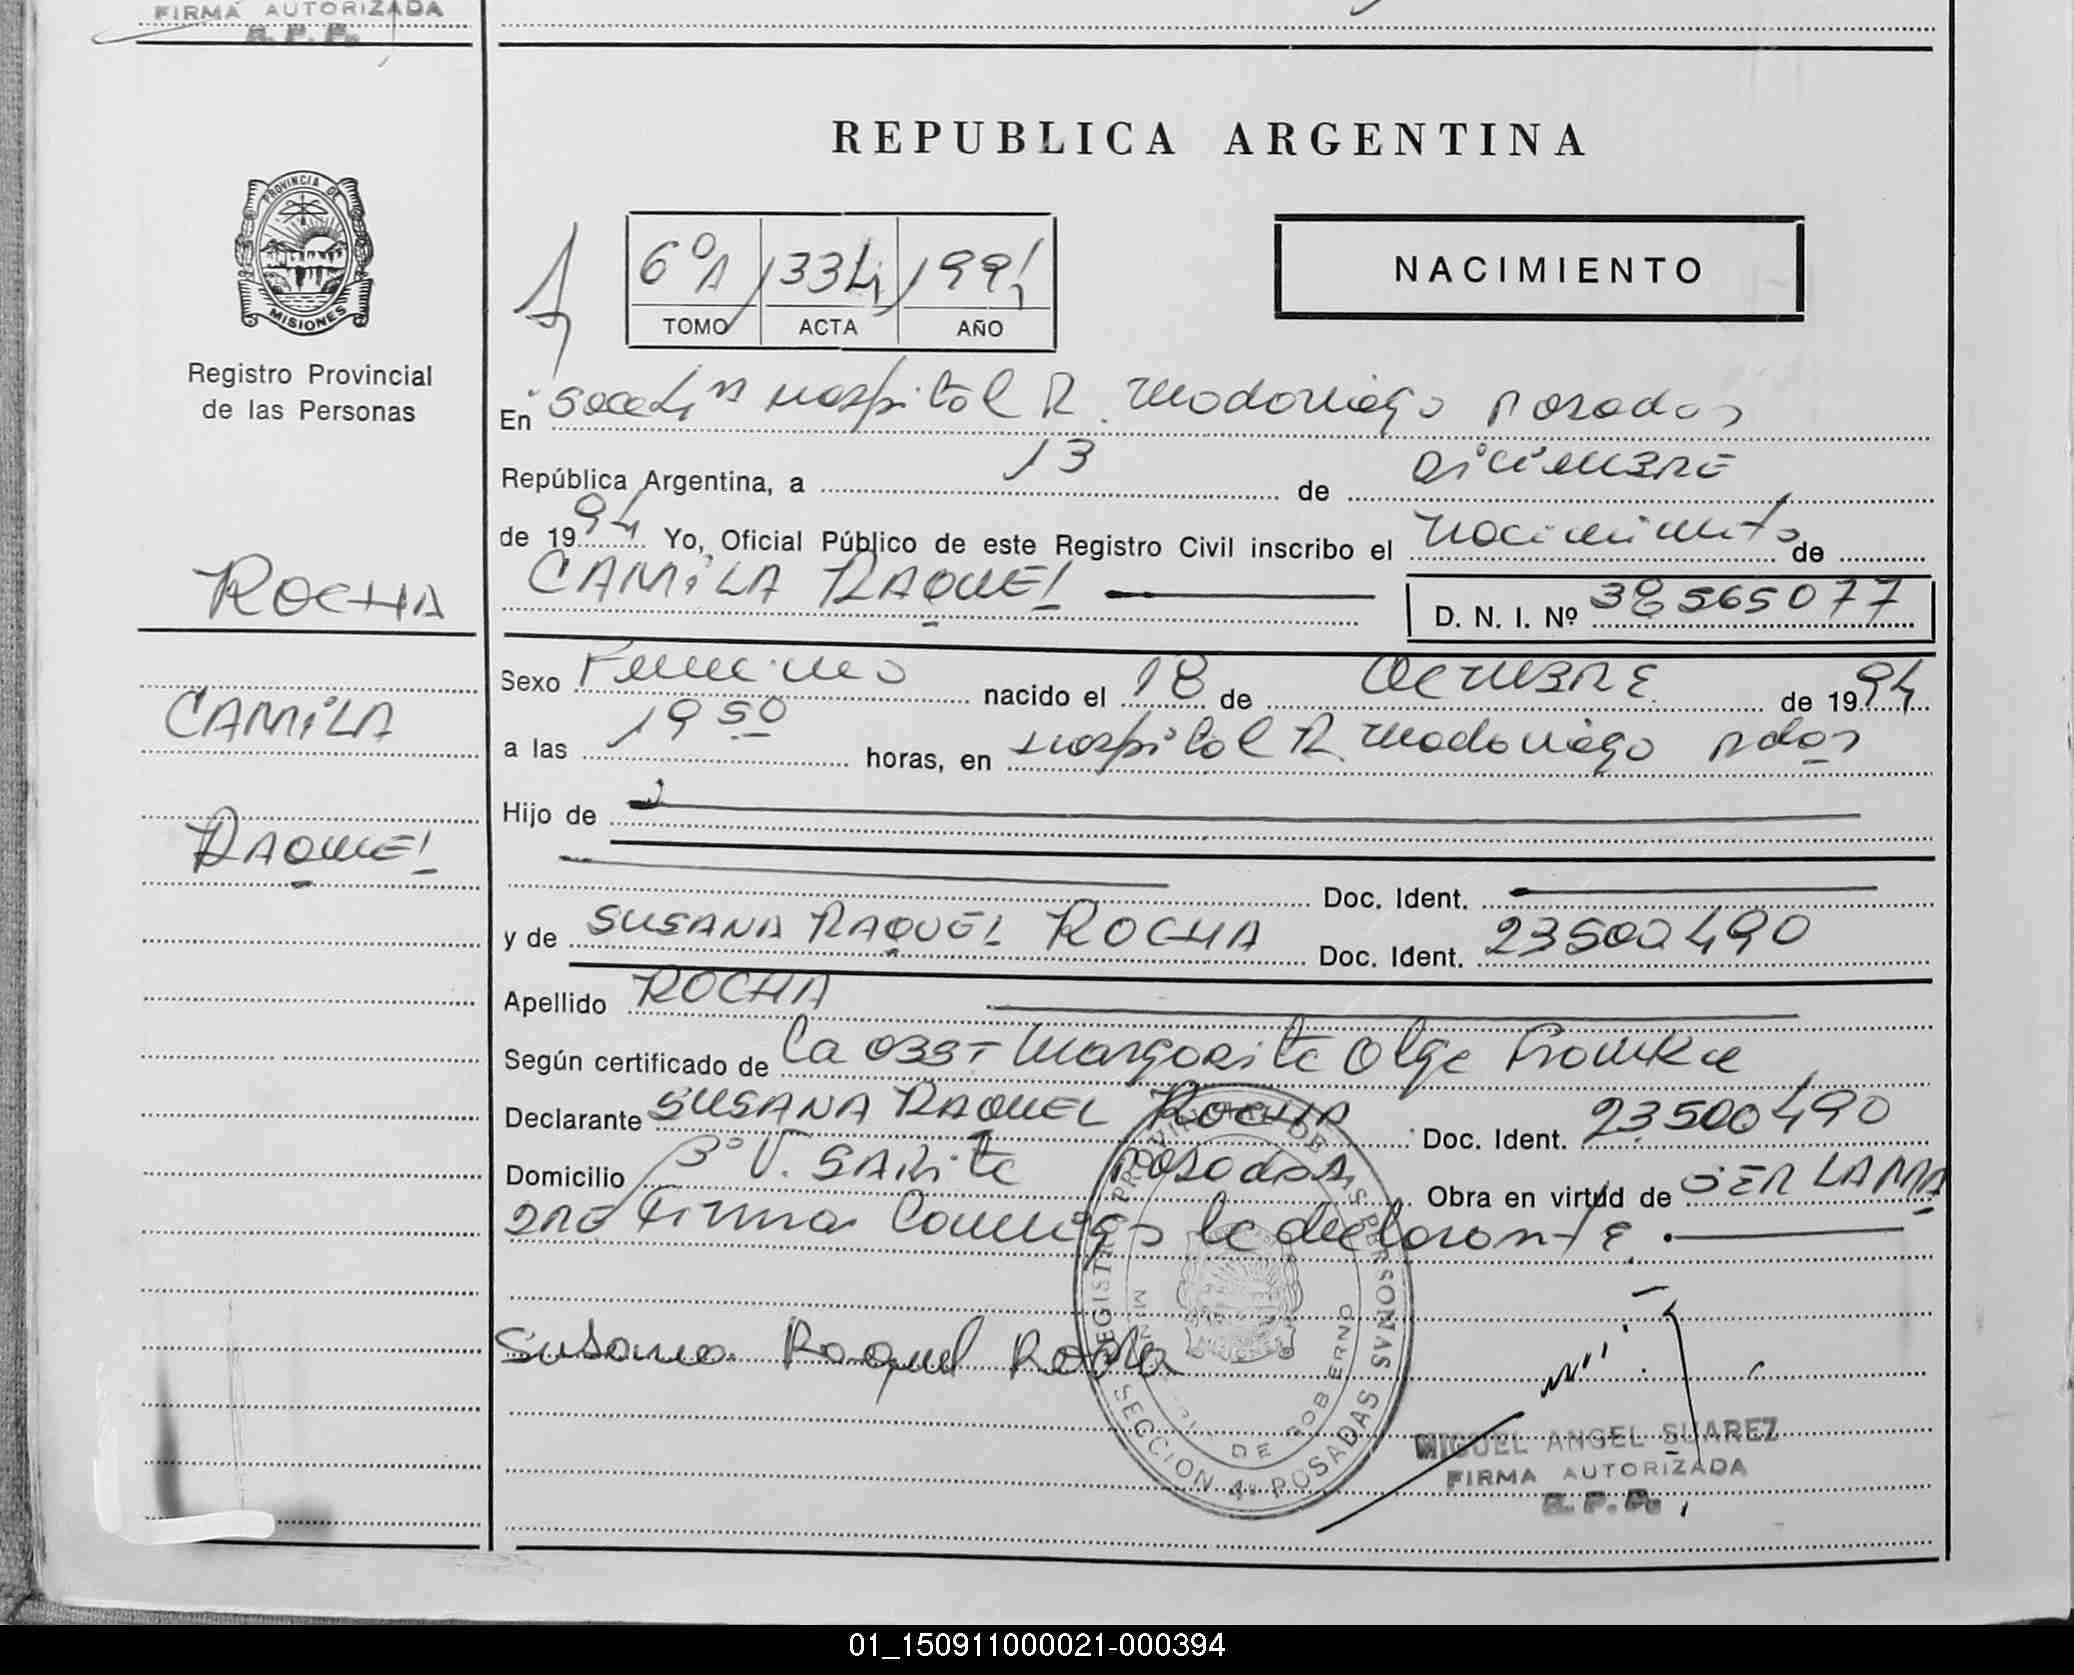 FIRMA AUTORIZADA
R. P. P.
REPUBLICA ARGENTINA
PROVINCIA DE
MISIONES
Registro Provincial
de las Personas
6º A 1334 1994
TOMO ACTA AÑO
NACIMIENTO
En Hospital R. Madariaga Posadas
República Argentina, a 13 de DICIEMBRE
de 1994 Yo, Oficial Público de este Registro Civil inscribo el nacimiento de
CAMILA RAQUEL
D. N. I. Nº 38565077
ROCHA
CAMILA
RAQUEL
Sexo Femenino nacido el 18 de OCTUBRE de 1994
a las 19 50 horas, en Hospital R Madariaga Pdas
Hijo de
Doc. Ident.
y de SUSANA RAQUEL ROCHA Doc. Ident. 23500490
Apellido ROCHA
Según certificado de la OBST Margarita Olga
Declarante SUSANA RAQUEL ROCHA Doc. Ident. 23500490
Domicilio Posadas Obra en virtud de SER LA MA
DRE Firma Conmigo la declarante.
Susana Raquel Rocha
REGISTRO PROVINCIAL DE LAS PERSONAS
MINISTERIO DE GOBIERNO
SECCION 4ª POSADAS
MIGUEL ANGEL SUAREZ
FIRMA AUTORIZADA
R. P. P.
01_150911000021-000394